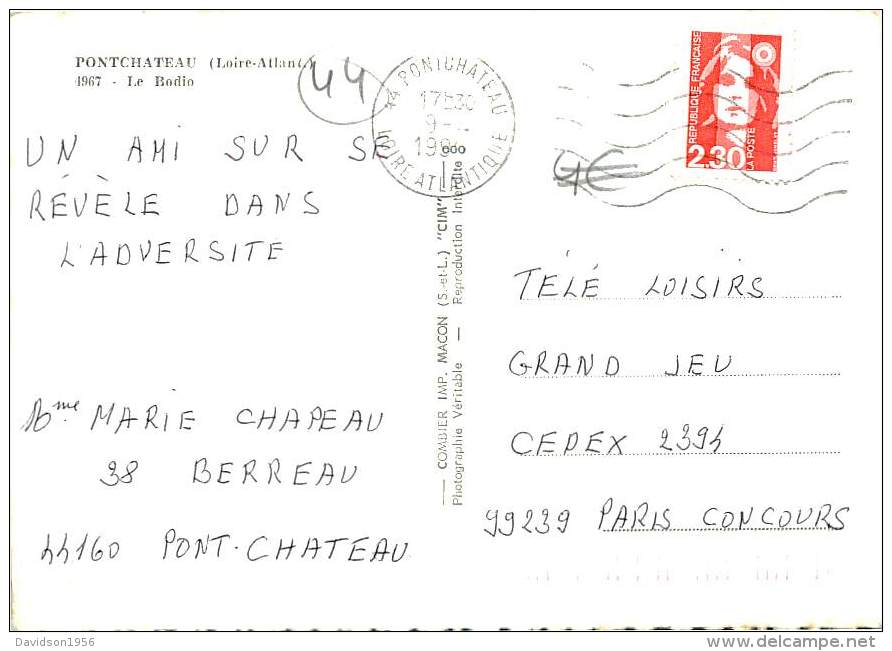 PONTCHATEAU (Loire-Atlant.)
4967 - Le Bodio
44
44 PONTCHATEAU
17H30
9-
LOIRE ATLANTIQUE
REPUBLIQUE FRANÇAISE
2,30
LA POSTE
1€
UN AMI SUR SE
RÉVÈLE DANS
L'ADVERSITE
Mme MARIE CHAPEAU
38 BERREAU
44160 PONT-CHATEAU
COMBIER IMP. MACON (S.-et-L.) "CIM"
Photographie Véritable — Reproduction Interdite
TÉLÉ LOISIRS
GRAND JEU
CEDEX 2394
99239 PARIS CONCOURS
Davidson1956
www.delcampe.net